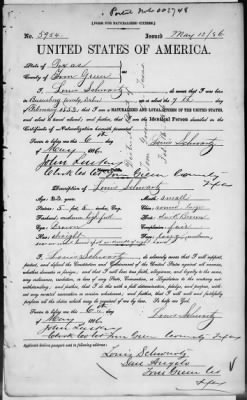 [FORM FOR NATURALIZED CITIZEN.]
No. 5954. Issued May 12/86
UNITED STATES OF AMERICA.
State of Texas
County of Tom Green
I, Louis Schwartz, do swear that I was born
in on or about the 7th day of
February, 1853; that I am a NATURALIZED AND LOYAL CITIZEN OF THE UNITED STATES,
and about to travel abroad; and further, that I am the Identical Person described in the
Certificate of Naturalization herewith presented.
Sworn to before me this 6th
day of May 1886.
Louis Schwartz
John
Clerk Co Ct Tom Green County
Texas
Description of Louis Schwartz
Age: years. Mouth: small
Stature: 5 feet, inches, Eng. Chin: round
Forehead: Hair: dark Brown
Eyes: brown Complexion: fair
Nose: straight Face:
I, Louis Schwartz, do solemnly swear that I will support,
protect, and defend the Constitution and Government of the United States against all enemies,
whether domestic or foreign; and that I will bear true faith, allegiance, and loyalty to the same,
any ordinance, resolution, or law of any State, Convention, or Legislature to the contrary not-
withstanding; and further, that I do this with a full determination, pledge, and purpose, without
any mental reservation or evasion whatsoever; and further, that I will well and faithfully
perform all the duties which may be required of me by law. So help me God.
Sworn to before me this 6th
day of May 1886.
Louis Schwartz
John
Clerk Co Ct Tom Green County Texas
Applicant desires passport sent to following address:
Louis Schwartz
San Angelo
Tom Green Co
Texas